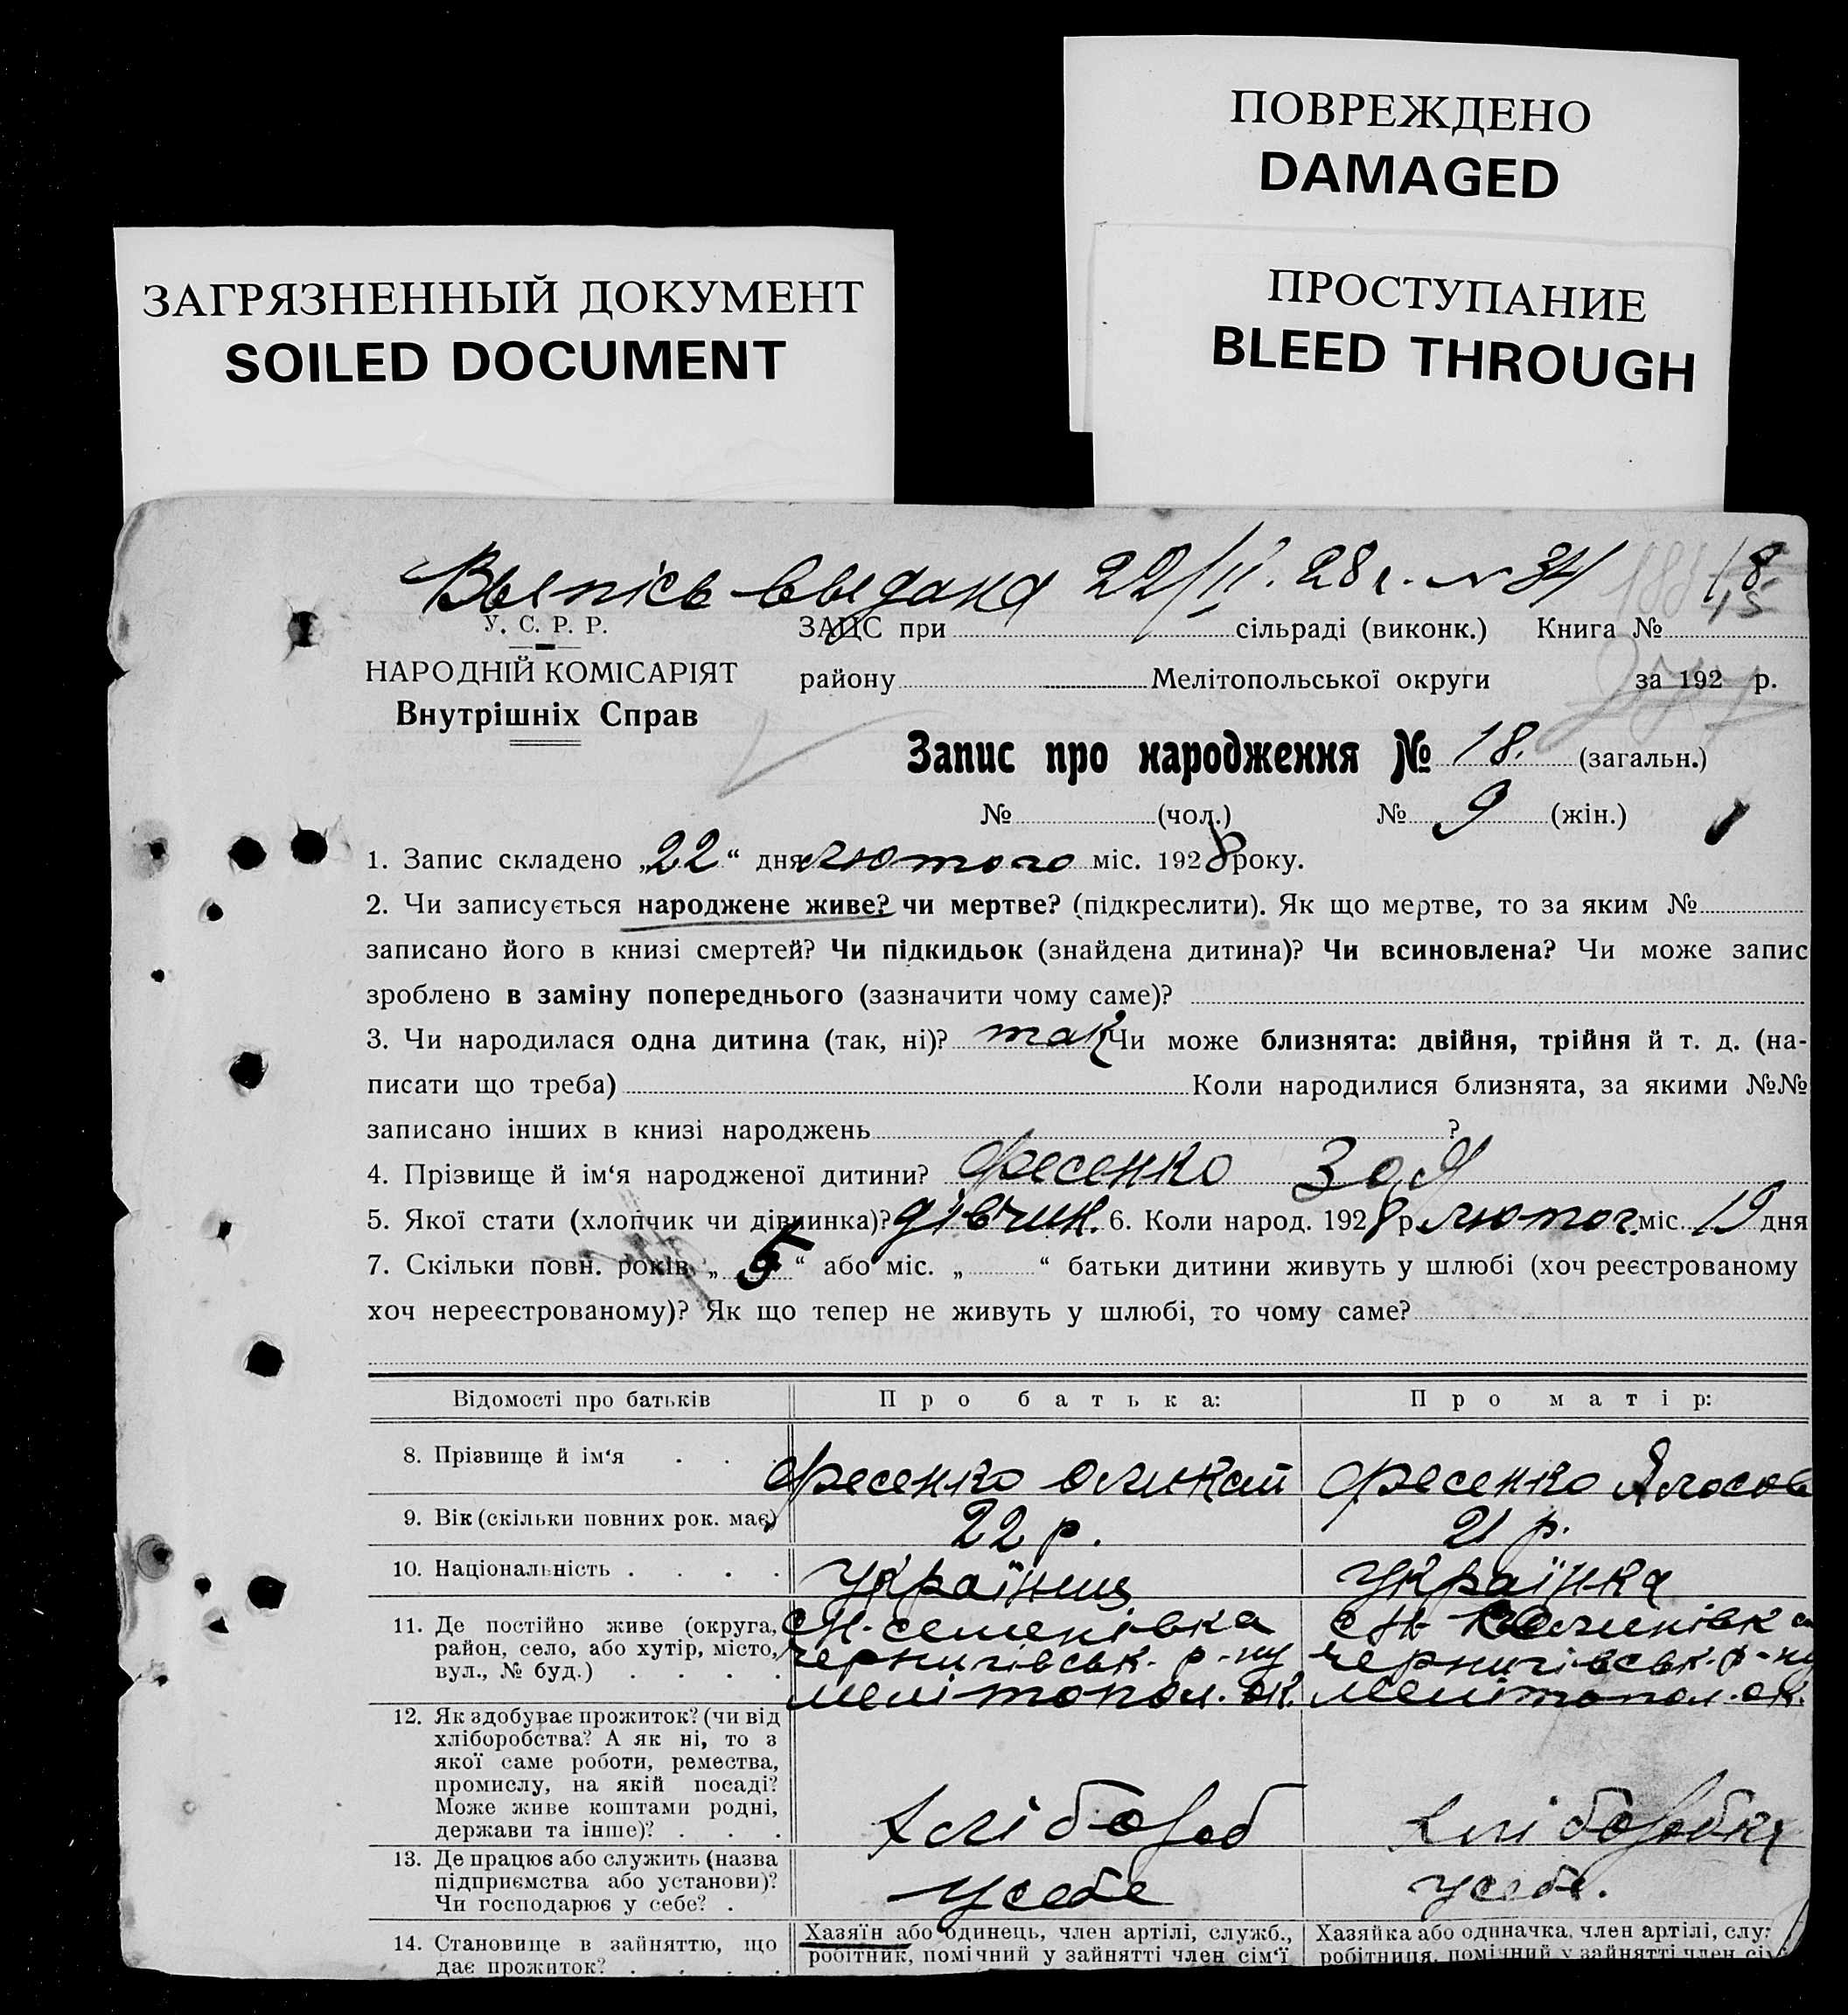 ПОВРЕЖДЕНО
DAMAGED
ЗАГРЯЗНЕННЫЙ ДОКУМЕНТ
SOILED DOCUMENT
ПРОСТУПАНИЕ
BLEED THROUGH
Выпісь выдана 22/II. 28 г. № 34 18.
У. С. Р. Р.
НАРОДНІЙ КОМІСАРІЯТ
Внутрішніх Справ
ЗАЦС при сільраді (виконк.) Книга №
району Мелітопольської округи за 192 р.
Запис про народження № 18. (загальн.)
№ (чол.) № 9 (жін.)
1. Запис складено „22“ дня лютого міс. 1928 року.
2. Чи записується народжене живе? чи мертве? (підкреслити). Як що мертве, то за яким №
записано його в книзі смертей? Чи підкидьок (знайдена дитина)? Чи всиновлена? Чи може запис
зроблено в заміну попереднього (зазначити чому саме)?
3. Чи народилася одна дитина (так, ні)? так Чи може близнята: двійня, трійня й т. д. (на-
писати що треба) Коли народилися близнята, за якими №№
записано інших в книзі народжень ?
4. Прізвище й ім‘я народженої дитини? Фесенко Зоя
5. Якої стати (хлопчик чи дівчинка)? дівчин. 6. Коли народ. 1928 р. лютог. міс. 19 дня
7. Скільки повн. років „5“ або міс. „ “ батьки дитини живуть у шлюбі (хоч реєстрованому
хоч нереєстрованому)? Як що тепер не живуть у шлюбі, то чому саме?
Відомості про батьків Про батька: Про матір:
8. Прізвище й ім‘я . . Фесенко Фесенко
9. Вік (скільки повних рок. має) 22 р. 21 р.
10. Національність . . . . Українць Українка
11. Де постійно живе (округа,
район, село, або хутір, місто,
вул., № буд.) . . . .
с. Н-Семенівка
Чернигівськ. р-ну
Мелітопол. ок.
Чернигівськ. р-ну
Мелітопол. ок.
12. Як здобуває прожиток? (чи від
хліборобства? А як ні, то з
якої саме роботи, ремества,
промислу, на якій посаді?
Може живе коштами родні,
держави та інше)? . . .
Хлібороб Хліборобка
13. Де працює або служить (назва
підприємства або установи)?
Чи господарює у себе? .
у себе у себе.
14. Становище в зайняттю, що
дає прожиток? . . . .
Хазяїн або одинець, член артілі, служб.,
робітник, помічний у зайнятті член сім‘ї
Хазяйка або одиначка, член артілі, слу
робітниця, помічний у зайнятті член сі